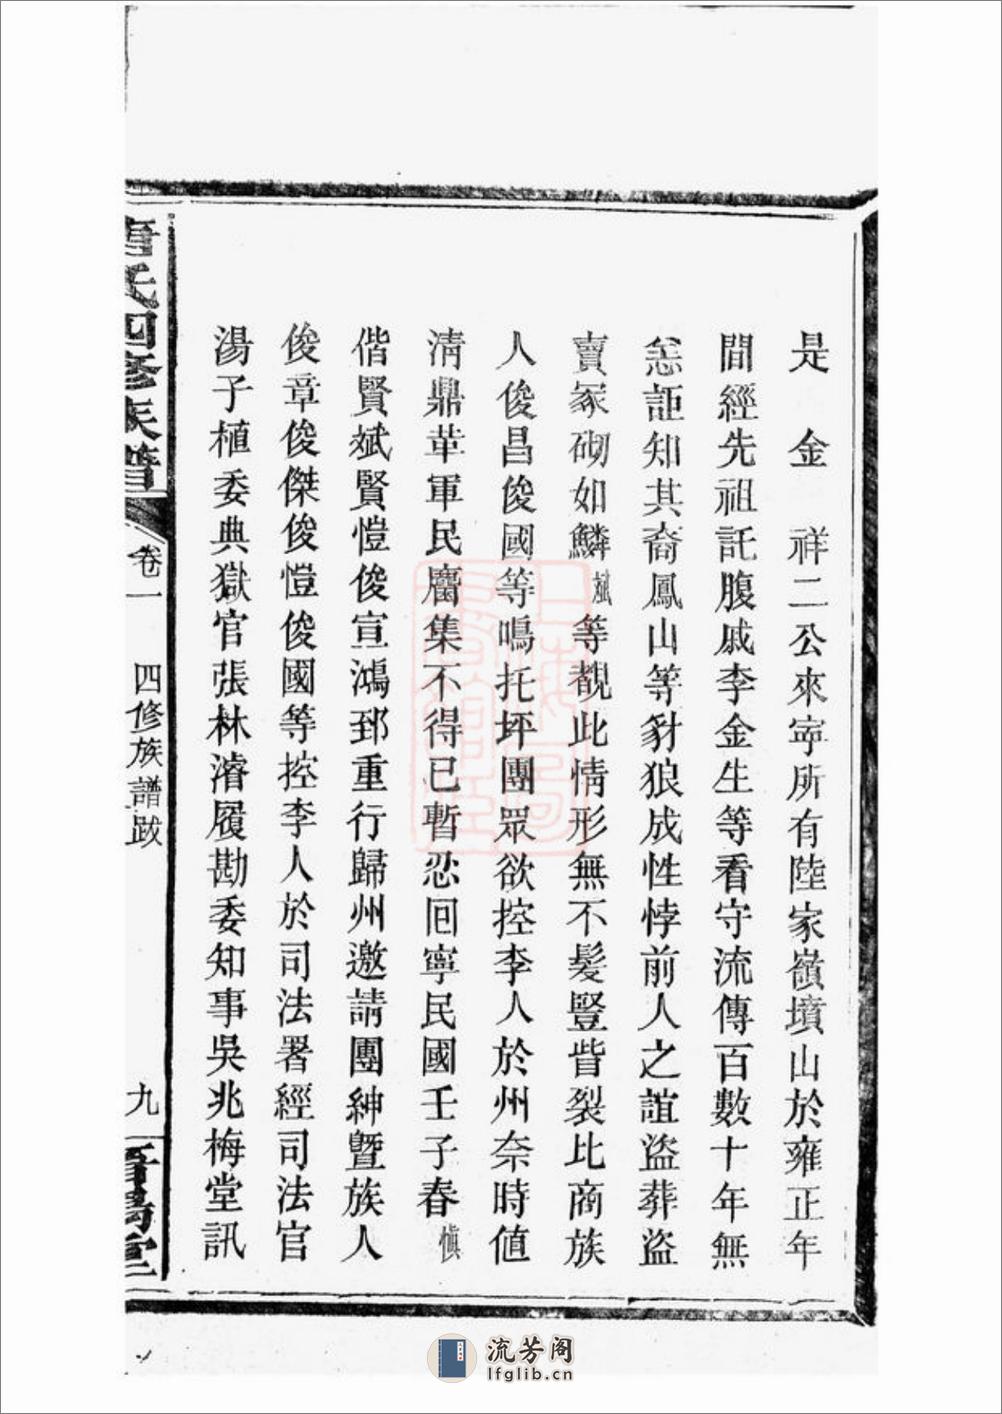 是金祥二公來寧所有陸家嶺墳山於雍正年
間經先祖託腹戚李金生等看守流傳百數十年無
恙詎知其裔鳳山等豺狼成性悖前人之誼盜葬盜
賣冢砌如鱗斌等覩此情形無不髮豎眥裂比商族
人俊昌俊國等鳴托坪團眾欲控李人於州奈時値
淸鼎革軍民麕集不得已暫忍囘寧民國壬子春愼
偕賢斌賢愷俊宣鴻郅重行歸州邀請團紳曁族人
俊章俊傑俊愷俊國等控李人於司法署經司法官
湯子植委典獄官張林濬履勘委知事吳兆梅堂訊
唐氏四修族譜
卷一
四修族譜跋
九
晋陽堂
流芳阁
lfglib.cn